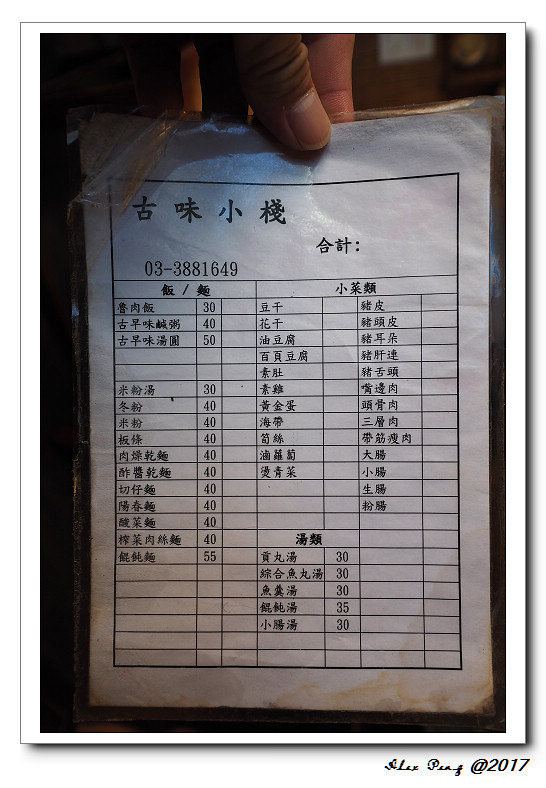 古味小棧
合計:
03-3881649
飯 / 麵 小菜類
魯肉飯 30 豆干 豬皮
古早味鹹粥 40 花干 豬頭皮
古早味湯圓 50 油豆腐 豬耳朵
百頁豆腐 豬肝連
素肚 豬舌頭
米粉湯 30 素雞 嘴邊肉
冬粉 40 黃金蛋 頭骨肉
米粉 40 海帶 三層肉
板條 40 筍絲 帶筋瘦肉
肉燥乾麵 40 滷蘿蔔 大腸
酢醬乾麵 40 燙青菜 小腸
切仔麵 40 生腸
陽春麵 40 粉腸
酸菜麵 40
榨菜肉絲麵 40 湯類
餛飩麵 55 貢丸湯 30
綜合魚丸湯 30
魚羹湯 30
餛飩湯 35
小腸湯 30
Alex Peng @2017